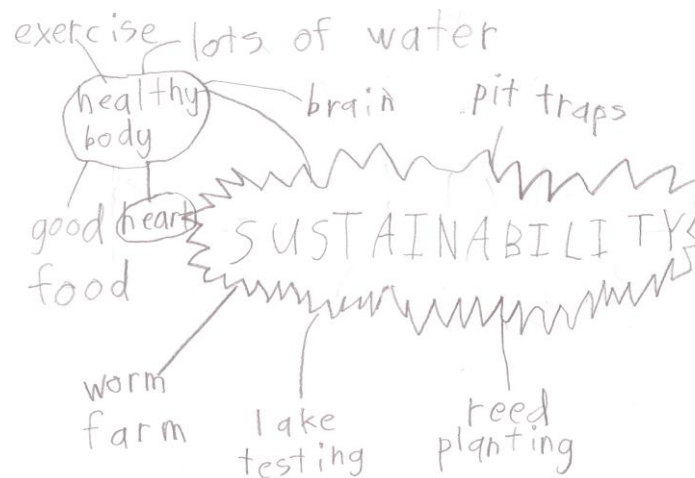 exercise
lots of water
healthy
body
brain
pit traps
good
food
heart
SUSTAINABILITY
worm
farm
lake
testing
reed
planting